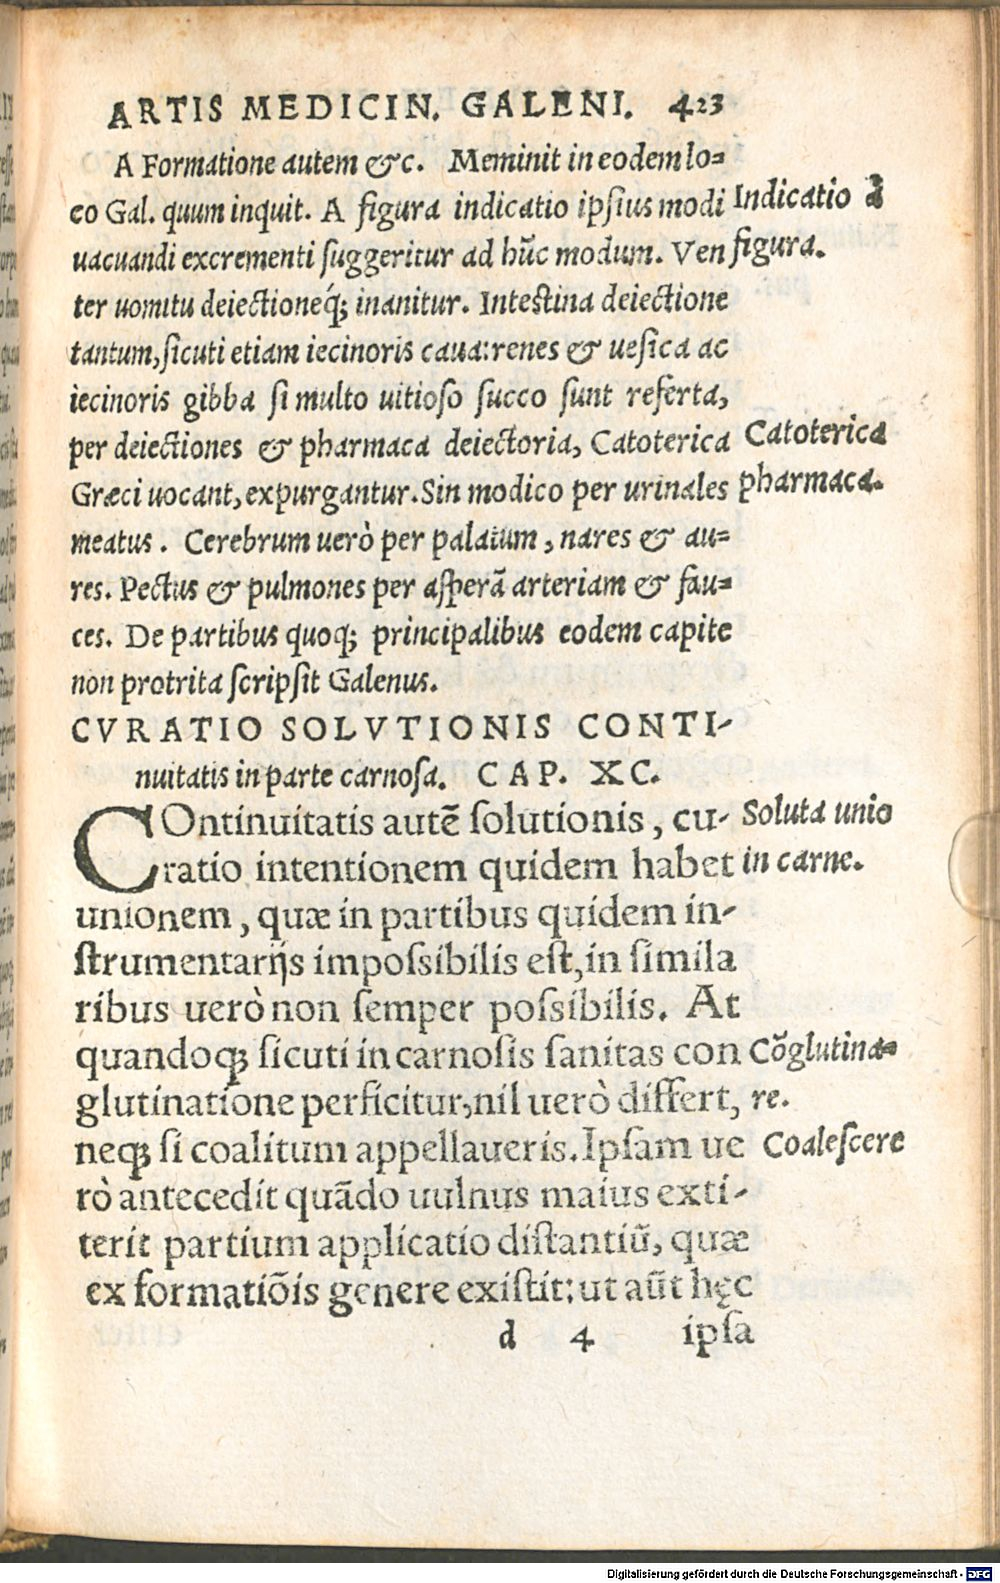 ARTIS MEDICIN. GALENI. 423
A Formatione autem &c. Meminit in eodem lo=
co Gal. quum inquit. A figura indicatio ipsius modi
Indicatio à
uacuandi excrementi suggeritur ad hūc modum. Ven
figura.
ter uomitu deiectioneq́; inanitur. Intestina deiectione
tantum, sicuti etiam iecinoris caua: renes & uesica ac
iecinoris gibba si multo uitioso succo sunt referta,
per deiectiones & pharmaca deiectoria, Catoterica
Catoterica
Græci uocant, expurgantur. Sin modico per urinales
pharmaca.
meatus. Cerebrum uerò per palatum, nares & au=
res. Pectus & pulmones per asperā arteriam & fau=
ces. De partibus quoq; principalibus eodem capite
non protrita scripsit Galenus.
CVRATIO SOLVTIONIS CONTI-
nuitatis in parte carnosa. CAP. XC.
COntinuitatis autē solutionis, cu-
Soluta unio
ratio intentionem quidem habet
in carne.
unionem, quæ in partibus quidem in-
strumentarijs impossibilis est, in simila
ribus uerò non semper possibilis. At
quandoq; sicuti in carnosis sanitas con
Cōglutina=
glutinatione perficitur, nil uerò differt,
re.
neq; si coalitum appellaueris. Ipsam ue
Coalescere
rò antecedit quādo uulnus maius exti-
terit partium applicatio distantiū, quæ
ex formatiōis genere existit: ut aūt hęc
d 4 ipsa
Digitalisierung gefördert durch die Deutsche Forschungsgemeinschaft - DFG